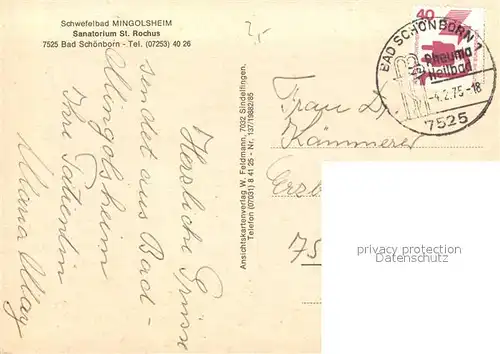 Schwefelbad MINGOLSHEIM
Sanatorium St. Rochus
7525 Bad Schönborn - Tel. (07253) 40 26
2,-
Herzliche Grüsse
sendet aus Bad-
Mingolsheim
Ihre Patientin
Maria May
Ansichtskartenverlag W. Feldmann, 7032 Sindelfingen,
Telefon (07031) 8 41 25 - Nr. 137/19882/85
40
BAD SCHÖNBORN 1
Rheuma
Heilbad
-4.2.75-18
7525
Frau Dr.
Kämmerer
Erzb
75
privacy protection watermark
Datenschutz Wasserzeichen